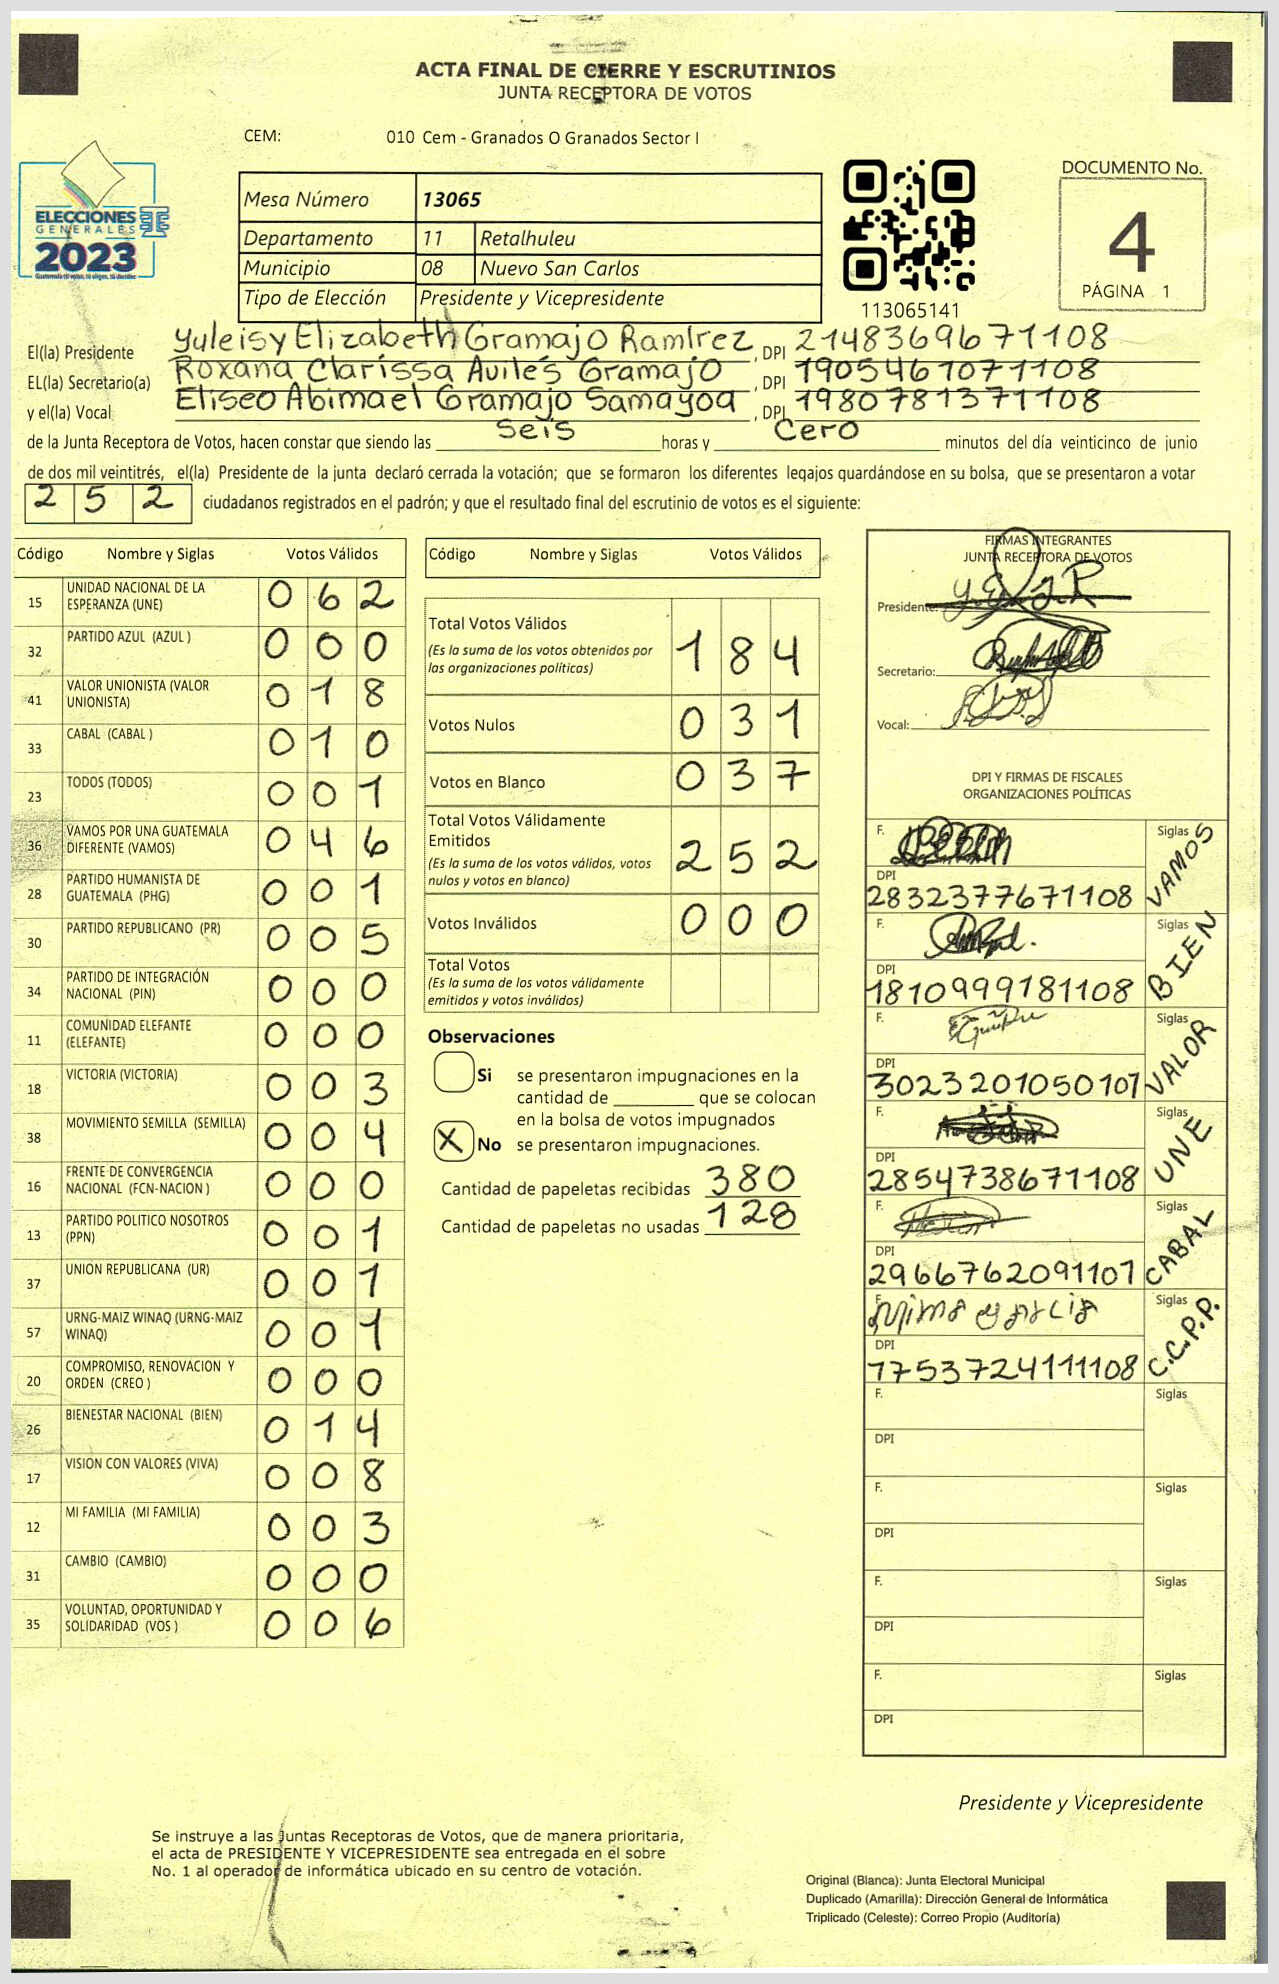 ACTA FINAL DE CIERRE Y ESCRUTINIOS
JUNTA RECEPTORA DE VOTOS
CEM: 010 Cem - Granados O Granados Sector I
ELECCIONES
GENERALES
2023
Guatemala tú votas, tú eliges, tú decides
Mesa Número 13065
Departamento 11 Retalhuleu
Municipio 08 Nuevo San Carlos
Tipo de Elección Presidente y Vicepresidente
113065141
DOCUMENTO No.
4
PÁGINA 1
El(la) Presidente Yuleisy Elizabeth Gramajo Ramírez, DPI 2148369671108
EL(la) Secretario(a) Roxana Clarissa Avilés Gramajo, DPI 1905461071108
y el(la) Vocal Eliseo Abimael Gramajo Samayoa, DPI 1980781371108
de la Junta Receptora de Votos, hacen constar que siendo las Seis horas y Cero minutos del día veinticinco de junio
de dos mil veintitrés, el(la) Presidente de la junta declaró cerrada la votación; que se formaron los diferentes legajos guardándose en su bolsa, que se presentaron a votar
2 5 2 ciudadanos registrados en el padrón; y que el resultado final del escrutinio de votos es el siguiente:
Código Nombre y Siglas Votos Válidos
15 UNIDAD NACIONAL DE LA ESPERANZA (UNE) 0 6 2
32 PARTIDO AZUL (AZUL ) 0 0 0
41 VALOR UNIONISTA (VALOR UNIONISTA) 0 1 8
33 CABAL (CABAL ) 0 1 0
23 TODOS (TODOS) 0 0 1
36 VAMOS POR UNA GUATEMALA DIFERENTE (VAMOS) 0 4 6
28 PARTIDO HUMANISTA DE GUATEMALA (PHG) 0 0 1
30 PARTIDO REPUBLICANO (PR) 0 0 5
34 PARTIDO DE INTEGRACIÓN NACIONAL (PIN) 0 0 0
11 COMUNIDAD ELEFANTE (ELEFANTE) 0 0 0
18 VICTORIA (VICTORIA) 0 0 3
38 MOVIMIENTO SEMILLA (SEMILLA) 0 0 4
16 FRENTE DE CONVERGENCIA NACIONAL (FCN-NACION ) 0 0 0
13 PARTIDO POLITICO NOSOTROS (PPN) 0 0 1
37 UNION REPUBLICANA (UR) 0 0 1
57 URNG-MAIZ WINAQ (URNG-MAIZ WINAQ) 0 0 1
20 COMPROMISO, RENOVACION Y ORDEN (CREO ) 0 0 0
26 BIENESTAR NACIONAL (BIEN) 0 1 4
17 VISION CON VALORES (VIVA) 0 0 8
12 MI FAMILIA (MI FAMILIA) 0 0 3
31 CAMBIO (CAMBIO) 0 0 0
35 VOLUNTAD, OPORTUNIDAD Y SOLIDARIDAD (VOS ) 0 0 6
Código Nombre y Siglas Votos Válidos
Total Votos Válidos 1 8 4
(Es la suma de los votos obtenidos por
las organizaciones políticas)
Votos Nulos 0 3 1
Votos en Blanco 0 3 7
Total Votos Válidamente
Emitidos 2 5 2
(Es la suma de los votos válidos, votos
nulos y votos en blanco)
Votos Inválidos 0 0 0
Total Votos
(Es la suma de los votos válidamente
emitidos y votos inválidos)
Observaciones
Si se presentaron impugnaciones en la
cantidad de ________ que se colocan
en la bolsa de votos impugnados
X No se presentaron impugnaciones.
Cantidad de papeletas recibidas 380
Cantidad de papeletas no usadas 128
FIRMAS INTEGRANTES
JUNTA RECEPTORA DE VOTOS
Presidente:
Secretario:
Vocal:
DPI Y FIRMAS DE FISCALES
ORGANIZACIONES POLÍTICAS
F. Siglas VAMOS
DPI
2832377671108
F. Siglas BIEN
DPI
1810999181108
F. Siglas VALOR
DPI
3023201050107
F. Siglas UNE
DPI
2854738671108
F. Siglas CABAL
DPI
2966762091101
F. Siglas C.C.P.P.
DPI
1753724111108
F. Siglas
DPI
F. Siglas
DPI
F. Siglas
DPI
F. Siglas
DPI
Presidente y Vicepresidente
Se instruye a las Juntas Receptoras de Votos, que de manera prioritaria,
el acta de PRESIDENTE Y VICEPRESIDENTE sea entregada en el sobre
No. 1 al operador de informática ubicado en su centro de votación.
Original (Blanca): Junta Electoral Municipal
Duplicado (Amarilla): Dirección General de Informática
Triplicado (Celeste): Correo Propio (Auditoría)